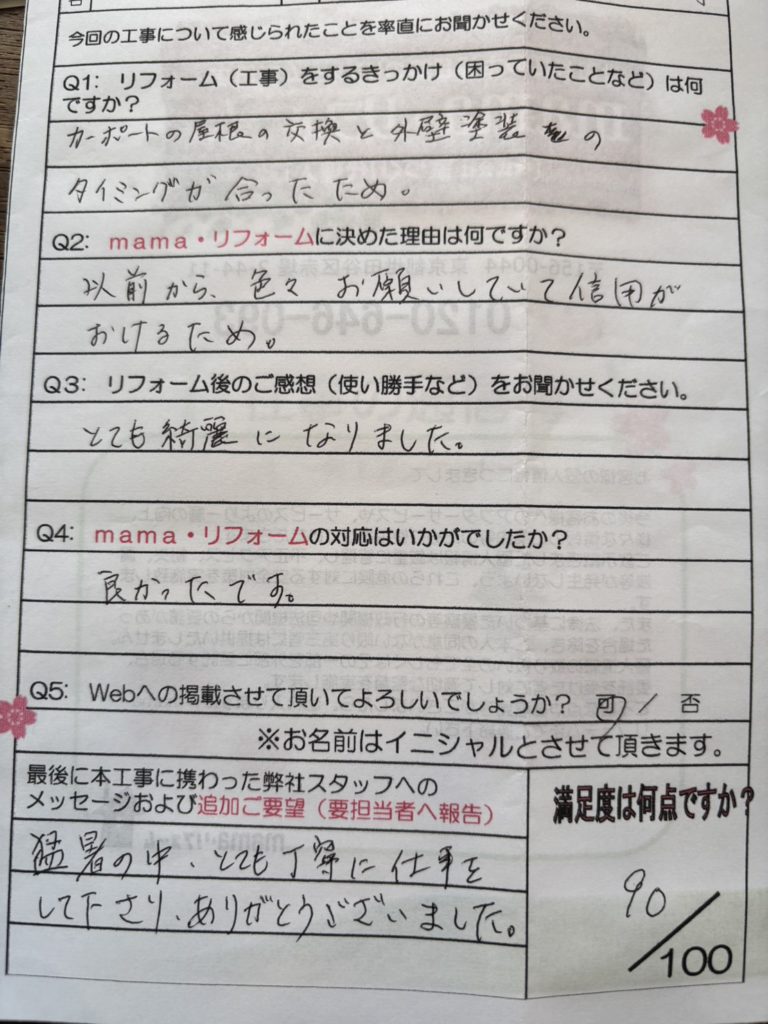 今回の工事について感じられたことを率直にお聞かせください。
Q1: リフォーム（工事）をするきっかけ（困っていたことなど）は何
ですか？
カーポートの屋根の交換と外壁塗装の
タイミングが合ったため。
Q2: mama・リフォームに決めた理由は何ですか？
以前から、色々お願いしていて信用が
おけるため。
Q3: リフォーム後のご感想（使い勝手など）をお聞かせください。
とても綺麗になりました。
Q4: mama・リフォームの対応はいかがでしたか？
良かったです。
Q5: Webへの掲載させて頂いてよろしいでしょうか？ 可 / 否
※お名前はイニシャルとさせて頂きます。
最後に本工事に携わった弊社スタッフへの
メッセージおよび追加ご要望（要担当者へ報告）
猛暑の中、とても丁寧に仕事を
してたさり、ありがとうございました。
満足度は何点ですか？
90/100